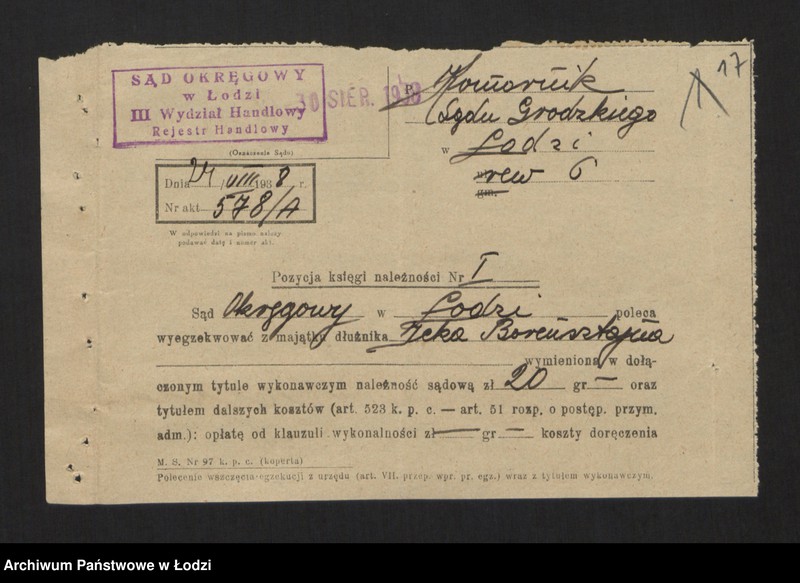 17
SĄD OKRĘGOWY
w Łodzi
III Wydział Handlowy
Rejestr Handlowy
30 SIER. 1938
(Oznaczenie Sądu)
P. Komornik
Sądu Grodzkiego
w Łodzi
rew 6
gm.
Dnia 24/VIII 1938 r.
Nr akt 578/A
W odpowiedzi na pismo należy
podawać datę i numer akt.
Pozycja księgi należności Nr I
Sąd Okręgowy w Łodzi poleca
wyegzekwować z majątku dłużnika Icka Borensztajna
wymienioną w dołą-
czonym tytule wykonawczym należność sądową zł 20 gr — oraz
tytułem dalszych kosztów (art. 523 k. p. c. — art. 51 rozp. o postęp. przym.
adm.): opłatę od klauzuli wykonalności zł — gr — koszty doręczenia
M. S. Nr 97 k. p. c. (koperta)
Polecenie wszczęcia egzekucji z urzędu (art. VII. przep. wpr. pr. egz.) wraz z tytułem wykonawczym.
Archiwum Państwowe w Łodzi